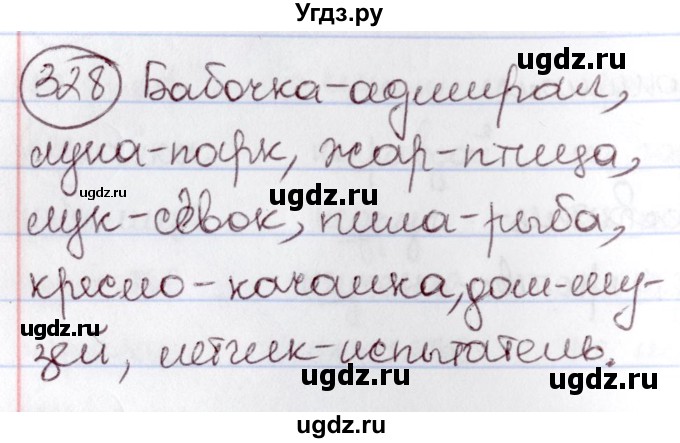 Угдз.ру
328 Бабочка-адмирал,
ugdz.ru
ugdz.ru
луна-парк, жар-птица,
ugdz.ru
ugdz.ru
лук-севок, пила-рыба,
ugdz.ru
кресло-качалка, дом-му-
ugdz.ru
ugdz.ru
зей, летчик-испытатель.
ugdz.ru
ugdz.ru
ugdz.ru